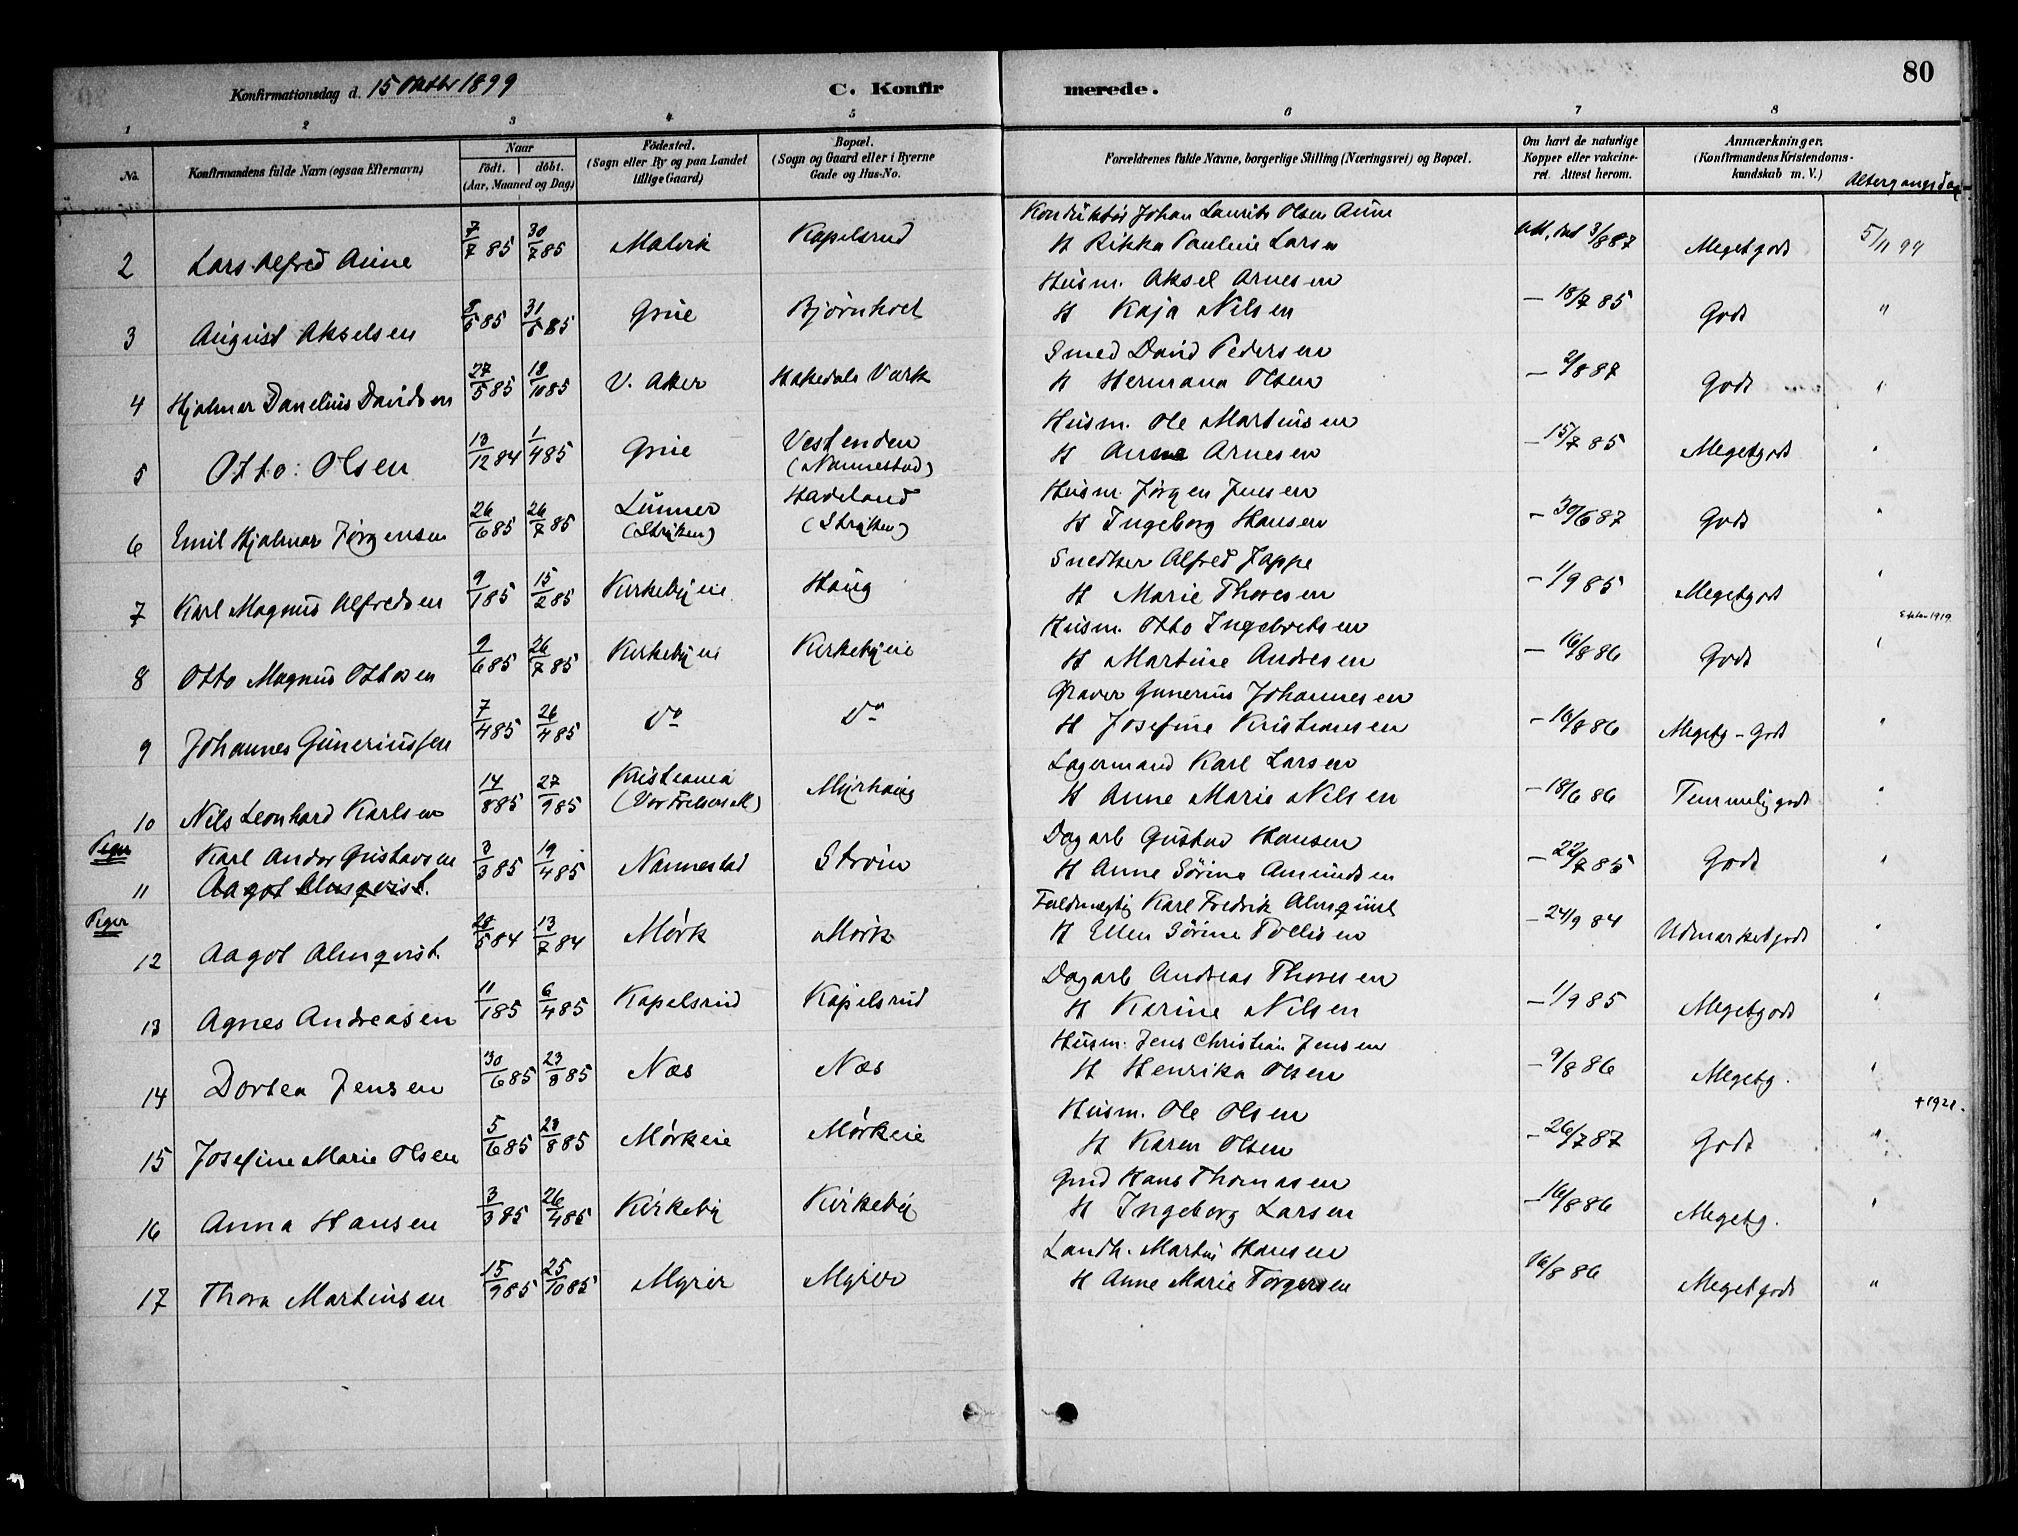 80
Konfirmationsdag d. 15 Oktbr 1899 C. Konfirmerede.
1 2 3 4 5 6 7 8
No.
Konfirmandens fulde Navn (ogsaa Efternavn)
Naar
Födt. döbt.
(Aar, Maaned og Dag)
Födested.
(Sogn eller By og paa Landet
tillige Gaard)
Bopæl.
(Sogn og Gaard eller i Byerne
Gade og Hus-No.
Forældrenes fulde Navne, borgerlige Stilling (Næringsvei) og Bopæl.
Om havt de naturlige
Kopper eller vakcine-
ret. Attest herom.
Anmærkninger.
(Konfirmandens Kristendoms-
kundskab m. V.)
Altergangsdag
Konduktör Johan Laurits Olsen Aune
2 Lars Alfred Aune 7/7 85 30/7 85 Malvik Kapelsrud H Rikka Pauline Larsen 3/8 87 Meget godt 5/11 99
Husm. Aksel Arnesen
3 August Akselsen 8/5 85 31/5 85 Grue Bjørnholt H Kaja Nilsen – 18/7 85 Godt "
Smed David Pedersen
4 Hjalmar Danelius Davidsen 27/5 85 18/10 85 V. Aker Hakedals Værk H Hermana Olsen – 2/8 87 Godt "
Husm. Ole Martinsen
5 Otto Olsen 13/12 84 1/4 85 Grue Vestenden (Nannestad) H Anne Arnesen – 15/7 85 Meget godt "
Husm. Jørgen Jensen
6 Emil Hjalmar Jørgensen 26/6 85 26/7 85 Lunner (Stryken) Hadeland (Stryken) H Ingeborg Hansen – 30/6 87 Godt "
Snedker Alfred Jappe
7 Karl Magnus Alfredsen 9/1 85 15/2 85 Kirkebyeie Haug H Marie Thoresen – 1/9 85 Meget godt "
Husm. Otto Ingebretsen 1919
8 Otto Magnus Ottosen 9/6 85 26/7 85 Kirkebyeie Kirkebyeie H Martine Andresen – 16/8 86 Godt "
Graver Gunerius Johannesen
9 Johannes Guneriussen 7/4 85 26/4 85 Do Do H Josefine Kristiansen – 16/8 86 Megetg – Godt "
Lagermand Karl Larsen
10 Nils Leonhard Karlsen 14/8 85 27/9 85 Kristiania (Vor Frelsers M) Myrhaug H Anne Marie Nilsen – 18/6 86 Temmelig godt "
Piger
Dagarb Gustav Hansen
11 Karl Andor Gustavsen 3/3 85 19/4 85 Nannestad Strøm H Anne Sørine Amundsen – 22/7 85 Godt "
Aagot Almqvist.
Piger
Fuldmægtig Karl Fredrik Almqvist
12 Aagot Almqvist 28/5 84 13/7 84 Mørk Mørk H Ellen Sørine Tollisen – 24/9 84 Udmærket godt "
Dagarb Andreas Thoresen
13 Agnes Andreasen 11/1 85 6/4 85 Kapelsrud Kapelsrud H Karine Nilsen – 1/9 85 Meget godt "
Husm. Jens Christian Jensen
14 Dortea Jensen 30/6 85 23/8 85 Næs Næs H Henrika Olsen – 9/8 86 Megetg. "
Husm. Ole Olsen + 1921.
15 Josefine Marie Olsen 5/6 85 23/8 85 Mørkeie Mørkeie H Karen Olsen – 26/7 87 Godt "
Grd Hans Thomasen
16 Anna Hansen 3/3 85 26/4 85 Kirkeby Kirkeby H Ingeborg Larsen – 16/8 86 Megetg. "
Landh. Martin Hansen
17 Thora Martinsen 15/9 85 25/10 85 Myrer Myrer H Anne Marie Torgersen 16/8 86 Meget godt "